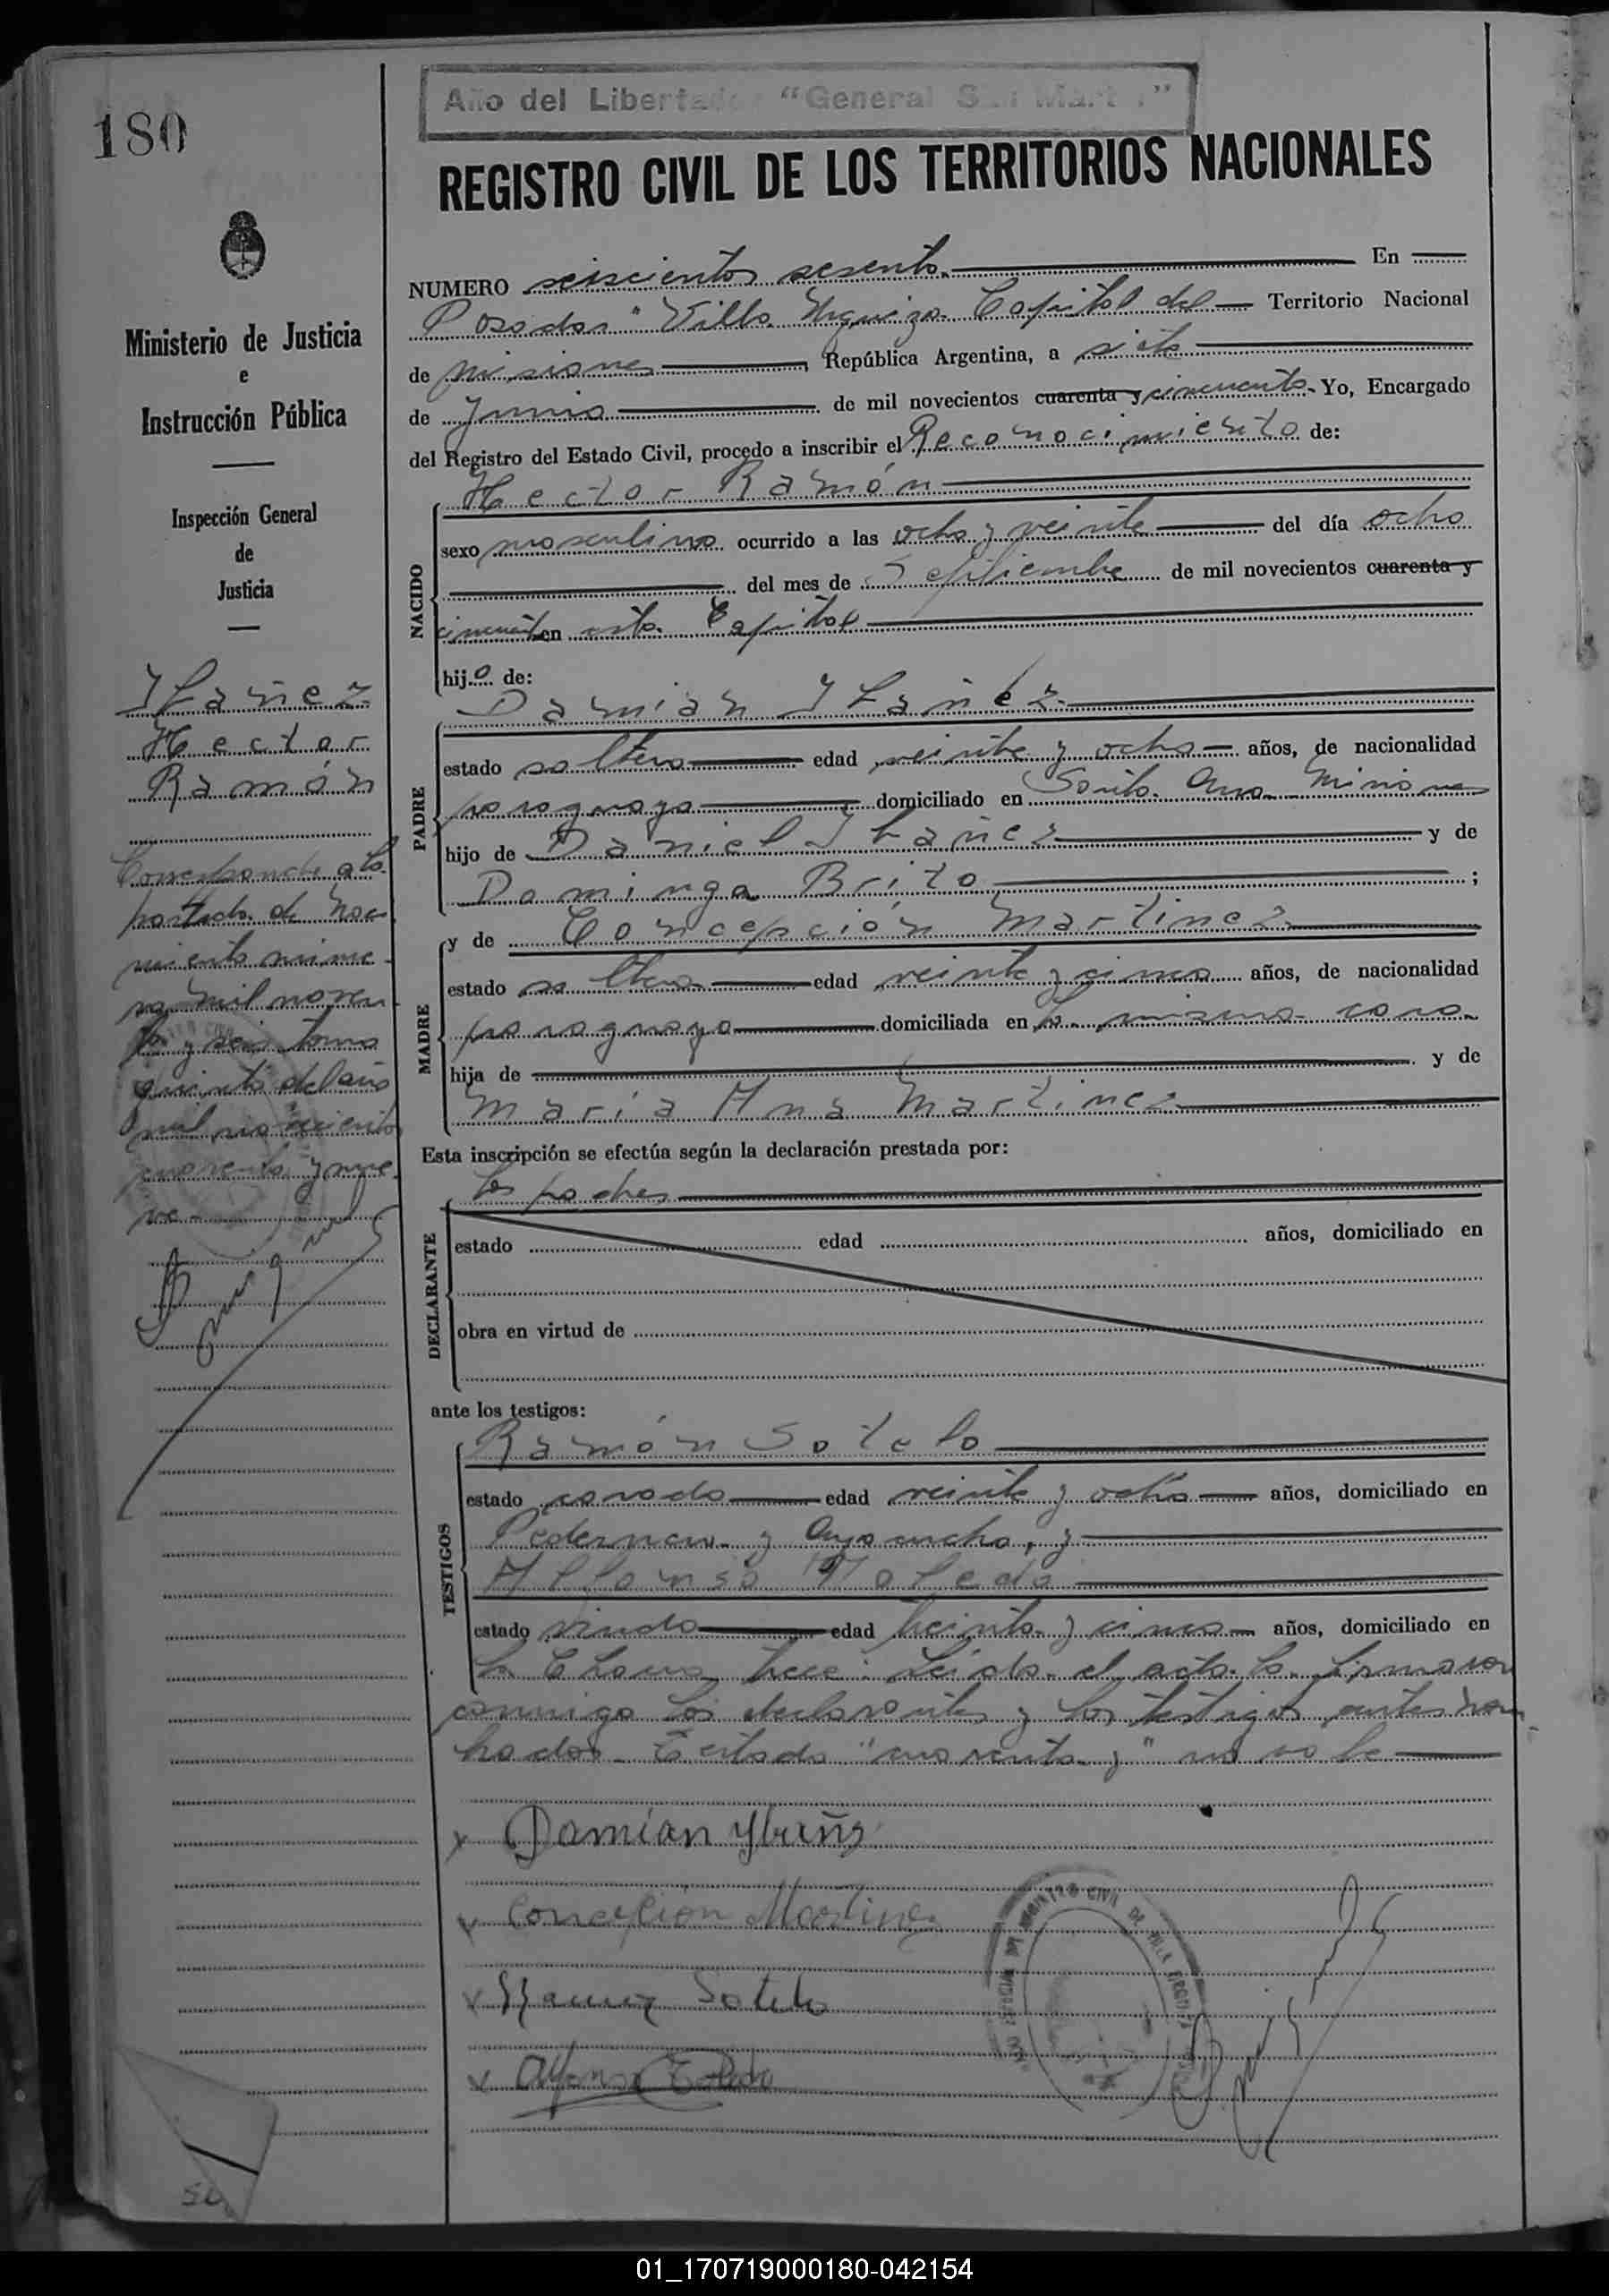 180
Año del Libertador "General San Martín"
REGISTRO CIVIL DE LOS TERRITORIOS NACIONALES
Ministerio de Justicia
e
Instrucción Pública
Inspección General
de
Justicia
Ybañez
Hector
Ramón
Corresponde a la
partida de naci
miento núme
ro mil noven
ta y seis tomo
quinto del año
mil novecientos
cuarenta y nue
ve
NUMERO seiscientos sesenta En
Posadas "Villa Urquiza Capital del Territorio Nacional
de Misiones, República Argentina, a siete
de Junio de mil novecientos cuarenta y cincuenta Yo, Encargado
del Registro del Estado Civil, procedo a inscribir el Reconocimiento de:
NACIDO
Hector Ramón
sexo masculino ocurrido a las ocho y veinte del día ocho
del mes de Septiembre de mil novecientos cuarenta y
en esta Capital
hijo de:
PADRE
Damian Ybañez
estado soltero edad veinte y ocho años, de nacionalidad
paraguaya domiciliado en Santa Ana Misiones
hijo de Daniel Ybañez y de
Dominga Brito;
MADRE
y de Concepción Martinez
estado soltera edad veinte y cinco años, de nacionalidad
paraguaya domiciliada en la misma casa
hija de y de
Maria Ana Martinez
Esta inscripción se efectúa según la declaración prestada por:
los padres
DECLARANTE
estado edad años, domiciliado en
obra en virtud de
ante los testigos:
TESTIGOS
Ramón Sotelo
estado casado edad veinte y ocho años, domiciliado en
Pedernera y Ayacucho, y
Alfonso Toledo
estado viudo edad treinta y cinco años, domiciliado en
la Chacra trece: Leida el acta la firmaron
conmigo los declarantes y los testigos antes nom
brados. Testado "cuarenta y" no vale
x Damian Ybañez
x Concepción Martinez
x Ramon Sotelo
x Alfonso Toledo
REGISTRO CIVIL DE VILLA URQUIZA
01_170719000180-042154